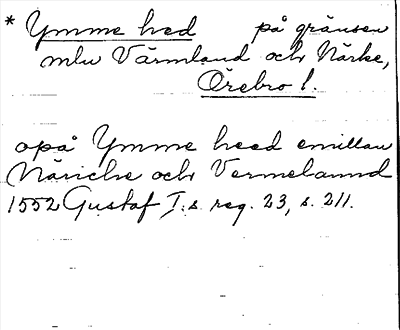 * Ymme hed på gränsen
mlu Värmland och Närke,
Örebro l.
opå Ymme heed emillan
Näriche och Vermelannd
1552 Gustaf I:s reg. 23, s. 211.